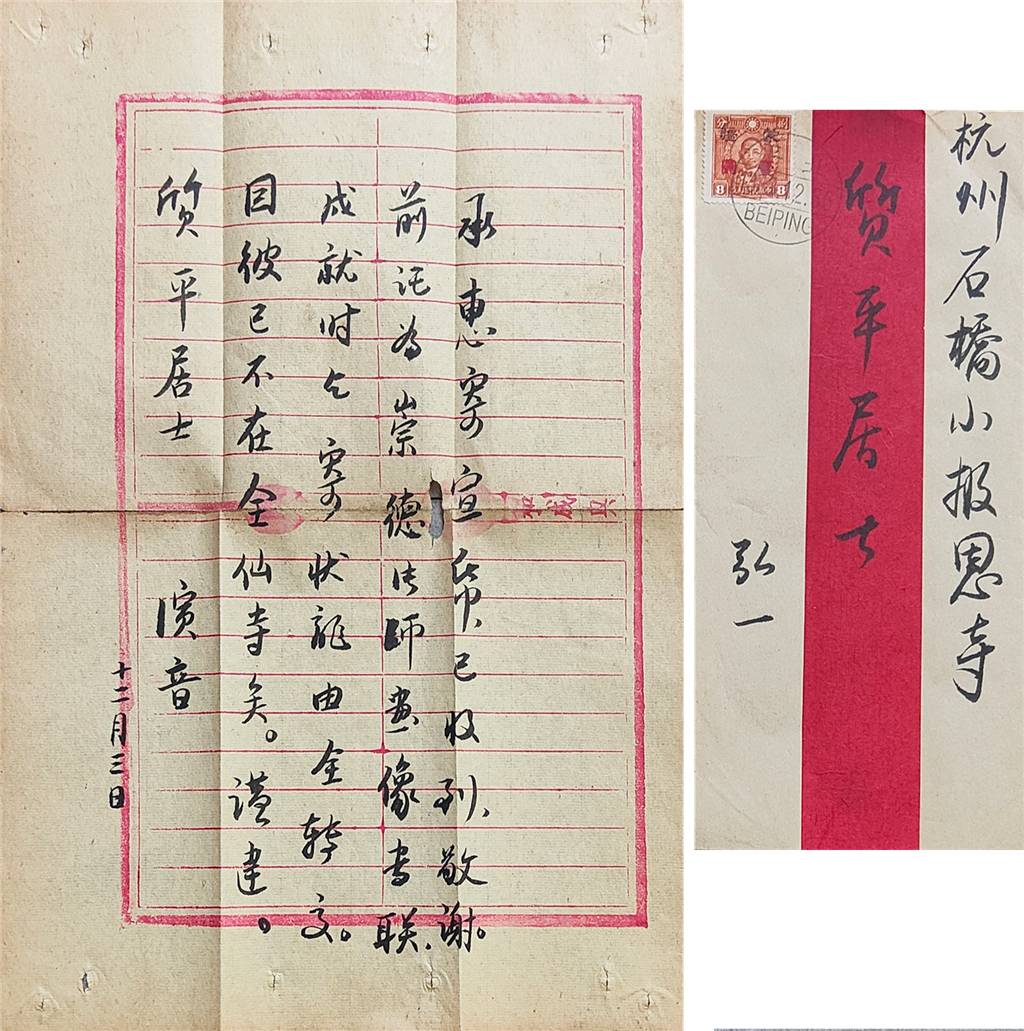 承惠寄宣纸已收到、敬谢。
前托为崇德法师画像书联、
成就时乞寄状龍由余转交。
因彼已不在金仙寺矣。谨达。
质平居士 演音
十二月三日
杭州石橋小报恩寺
質平居士
弘一
8 8
BEIPING